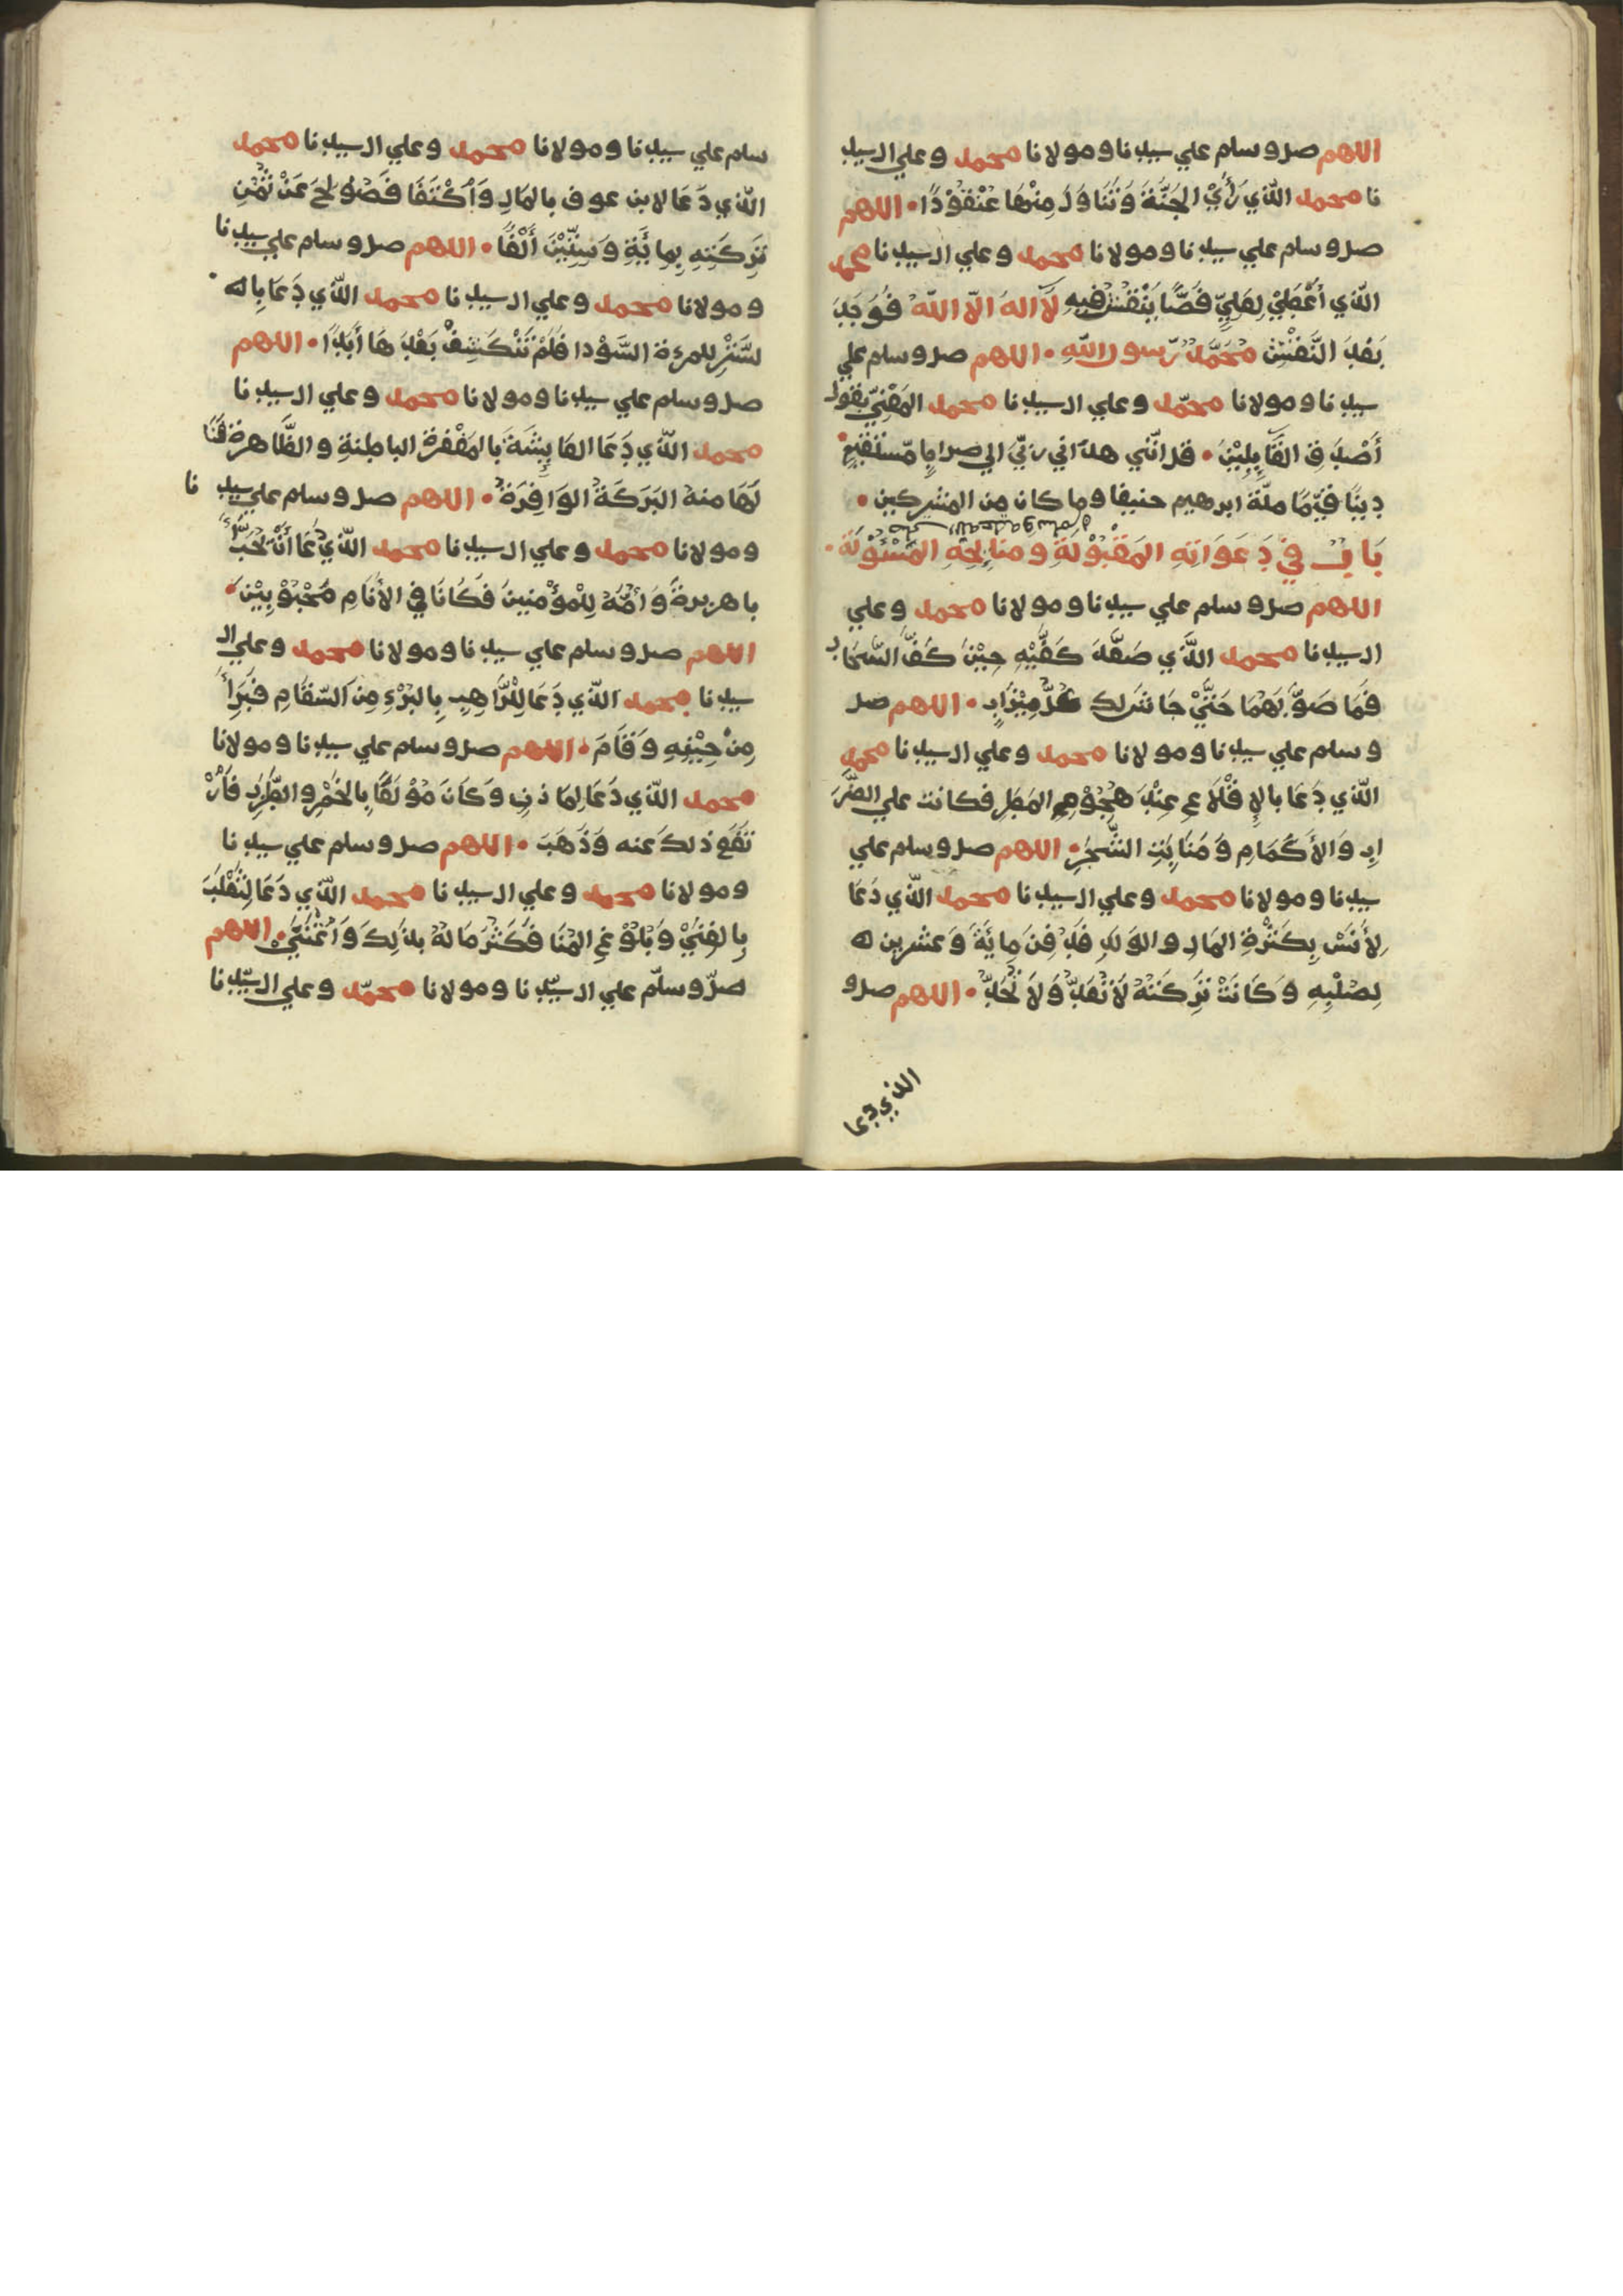 اللهم صل وسلم علي سيدنا ومولانا محمد وعلي ال سيد
نا محمد الّذي رَأَيْ الجَنَّةَ وَتَنَاوَلَ مِنْهَا عُنْقُوْدًا • اللهم
صل وسلم علي سيدنا ومولانا محمد وعلي ال سيدنا محمد
الّذي أَعْطَيْ لِعَلِيّ فَصًّا يَنْقُشُ فِيهِ لآ اله الّا اللّهُ فَوُجَدَ
بَعْدَ النَّقْشِ مُحَمَّدٌ رّسول اللّهِ • اللهم صل وسلم علي
سيدنا ومولانا محمّد وعلي ال سيدنا محمد المَعْنِيّ بقول
أَصْدَقِ القَآيِلِيْنَ • قل انّني هدٰاني ربّيَ الي صراطٍ مّستقيم
دِينًا قَيِّمًا ملّة ابرهيم حنيفا وما كان من المشركين •
صلى الله عليه وسلم
بَابٌ فِي دَعَوَاتِهِ المَقْبُوْلَةِ ومَنَايِحِهِ المَسْئُوْلَةِ •
اللهم صل وسلم علي سيدنا ومولانا محمد وعلي
ال سيدنا محمد اللَّذي صَفَّدَ كَفَّيْهِ حِيْنَ كَفَّ السَّحَاب
فَمَا صَوَّبَهُمَا حَتَّيْ جَاشَ لك كُلُّ مِيْزَابٍ • اللهم صل
وسلم علي سيدنا ومولانا محمد وعلي ال سيدنا محمد
الّذي دَعَا بالاِقْلَاعِ عِنْدَ هُجُوْمِ المَطَرِ فكانت علي الضِّرَ
ابِ وَالأَكَمَامِ وَمَنَابِتِ الشَّجَرِ • اللهم صل وسلم علي
سيدنا ومولانا محمد وعلي ال سيدنا محمد الّذي دَعَا
لِأَنَسْ بِكَثْرَةِ المَالِ والوَلَدِ فَدُفِنَ مِايَةَ وَعشرين له
لِصُلْبِهِ وَكَانَتْ تَرِكَتُهُ لَا تُعَدُّ وَلاَ تُحَدُّ • اللهم صل و
الذي دعا
سلم علي سيدنا ومولانا محمد وعلي ال سيدنا محمد
الّذي دَعَا لابن عوف بالمَالِ وَاكْتَفَا فَصُوْلِحَ عَنْ ثُمْنِ
تَرِكَتِهِ بِمايَةِ وَسِتِّيْنَ أَلْفًا • اللهم صل وسلم علي سيدنا
ومولانا محمد وعلي ال سيدنا محمد الّذي دَعَا بِاله
لسَّتْرِ للمرءة السَّوْدا فلَمْ تَنْكَشِفْ بَعْدَهَا أَبَدًا • اللهم
صل وسلم علي سيدنا ومولانا محمد وعلي ال سيدنا
محمد الّذي دَعَا العَايِشَةَ بَالمَغْفِرة الباطِنةِ والظَّاهرة فَنَا
لَهَا منهُ البَرَكَةُ الوَافِرَةُ • اللهم صل وسلم علي سيد نا
ومولانا محمد وعلي ال سيدنا محمد الّذي دُعَا أَنْ يُحَبَّبَ
باهريرةَ وَاُمُّهُ لِلْمؤْمنينَ فَكَانَا في الأَنَامِ مَحْبُوْبِيْنَ •
اللهم صل وسلم علي سيدنا ومولانا محمد وعلي ال
سيدنا محمد الّذي دَعَا لِلْرَّاهِبِ بِالبُرْءِ مِن السّقَامِ فَبَرِأَ
مِنْ حِيْنِهِ وَقَامَ • اللهم صل وسلم علي سيدنا ومولانا
محمد الّذي دَعَا لِمَاذِنِ وَكَانَ مُوْلَعًا بِالخَمْرِ والطَّرَبِ فَارْ
تَفَع ذلك عنه وَذَهَبَ • اللهم صل وسلم علي سيدنا
ومولانا محمد وعلي ال سيدنا محمد الّذي دَعَا لِثَعْلَبَ
بِالغِنَيْ وَبُلُوْغِ المُنَا فَكَثُرَ مَالهُ بذٰلِكَ وَاغْتَنَيْ • اللهم
صلّ وسلّم علي ال سيّدنا ومولانا محمّد وعلي ال سيّدنا